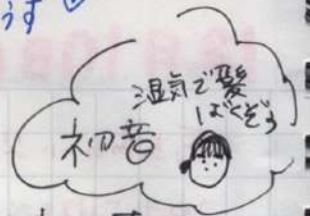 うす
湿気で髪
ばくぞう
初音